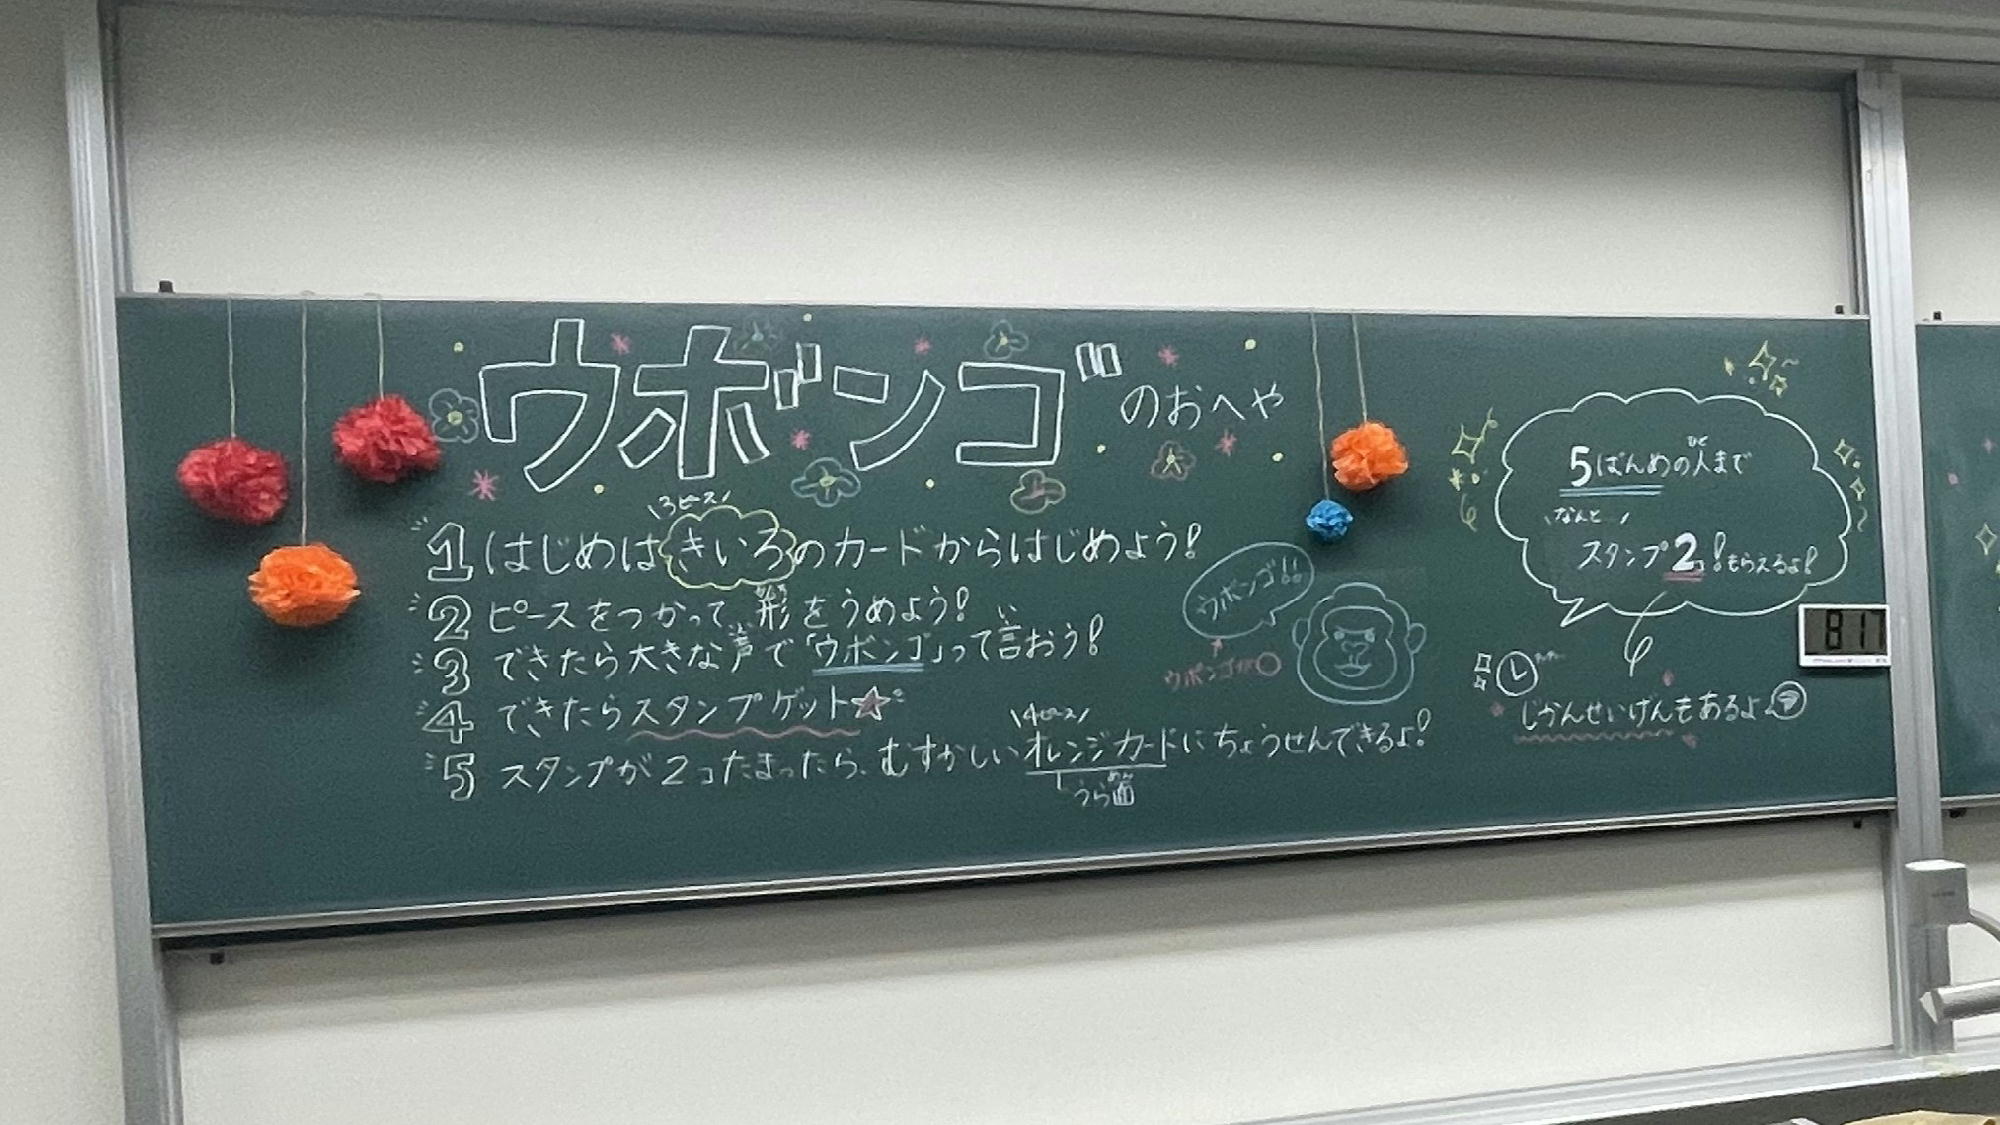 ウボンゴのおへや
\3ピース/
1 はじめはきいろのカードからはじめよう!
2 ピースをつかって、形をうめよう!
3 できたら大きな声で「ウボンゴ」って言おう!
い
4 できたらスタンプゲット☆
\4ピース/
5 スタンプが2コたまったら、むずかしいオレンジカードにちょうせんできるよ!
めん
うら面
ウボンゴ!!
ひと
5ばんめの人まで
\なんと…/
スタンプ2コ!もらえるよ!
じかんせいげんもあるよ
811